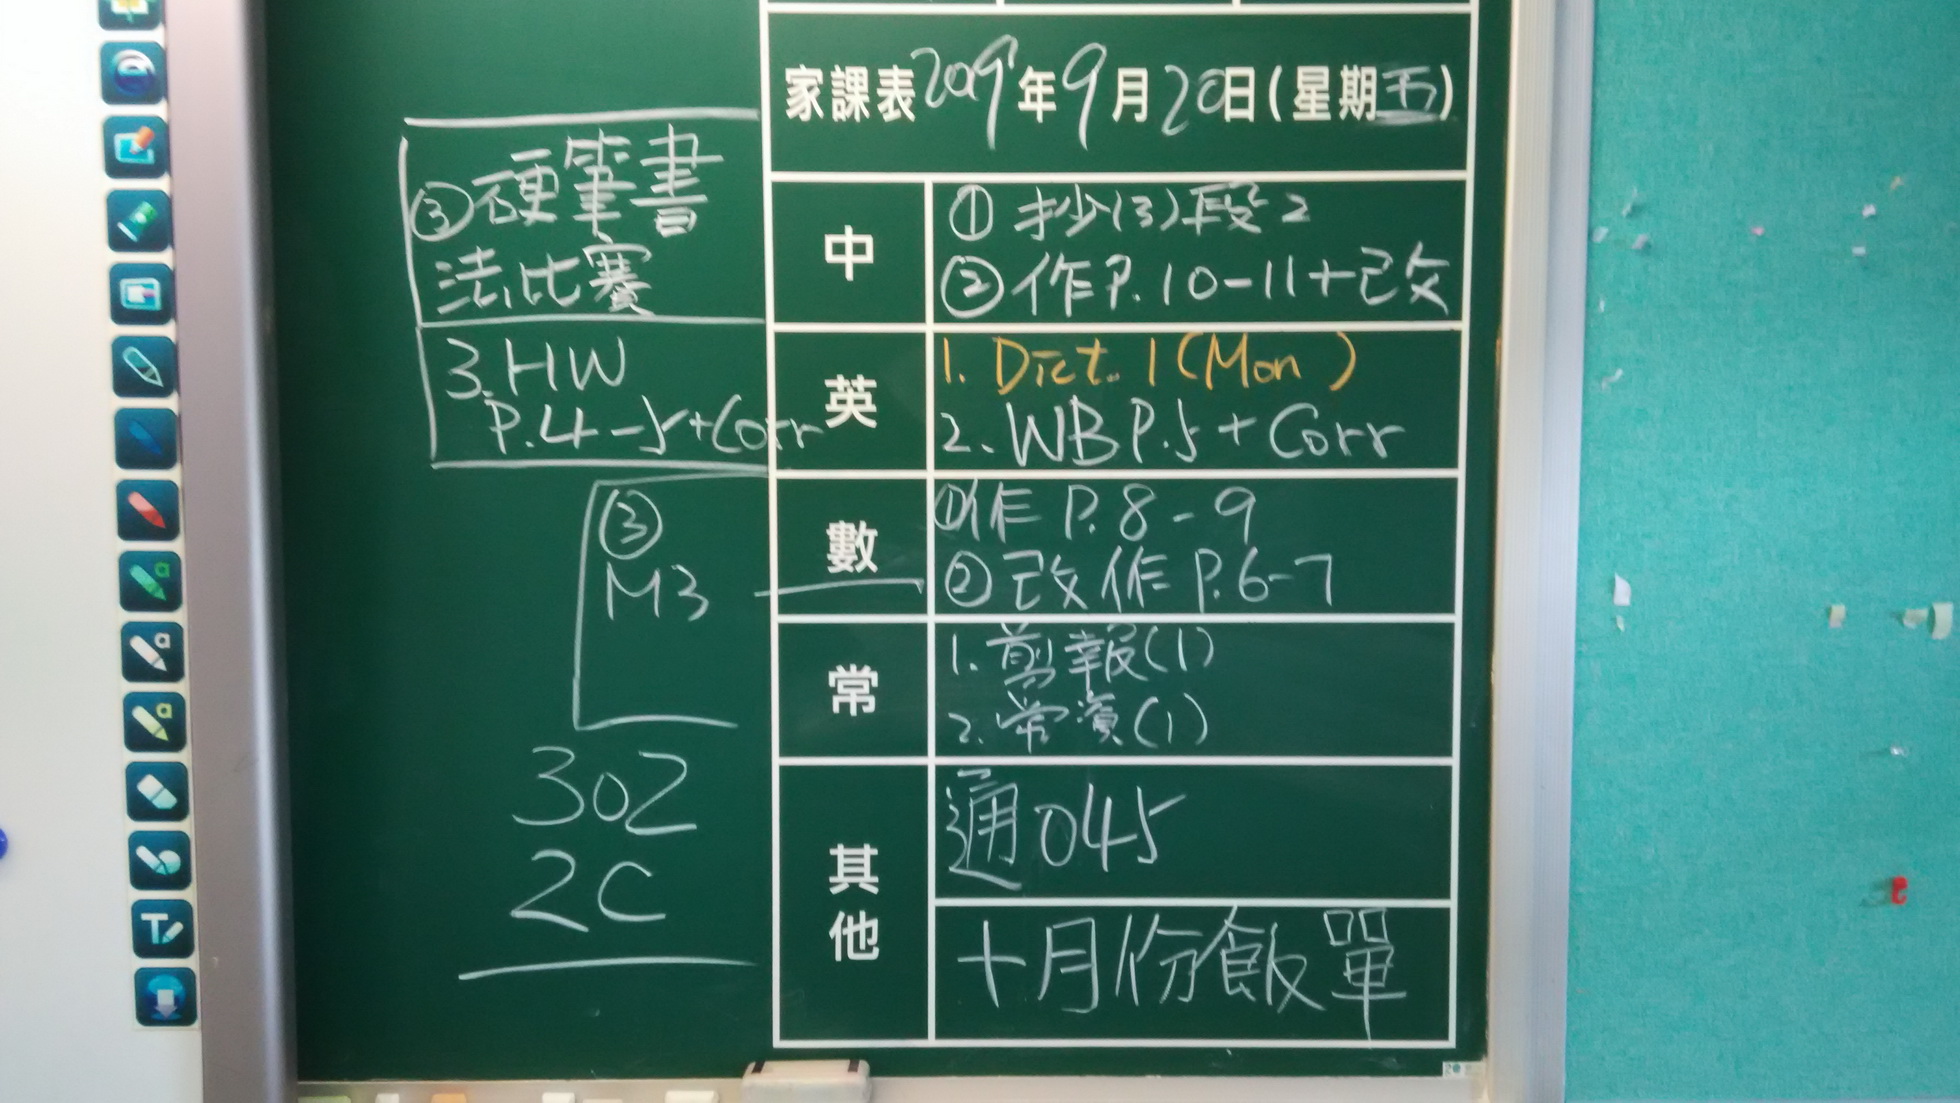 家課表2019年9月20日(星期五)
中
① 抄(3)段2
② 作P.10-11+改
③硬筆書
法比賽
英
1. Dict. 1 (Mon)
2. WB P.5 + Corr
3. HW
P.4-5+Corr
數
①作 P.8-9
② 改作 P.6-7
③
M3
常
1. 剪報(1)
2. 常漬(1)
其他
通045
十月份飯單
302
2C